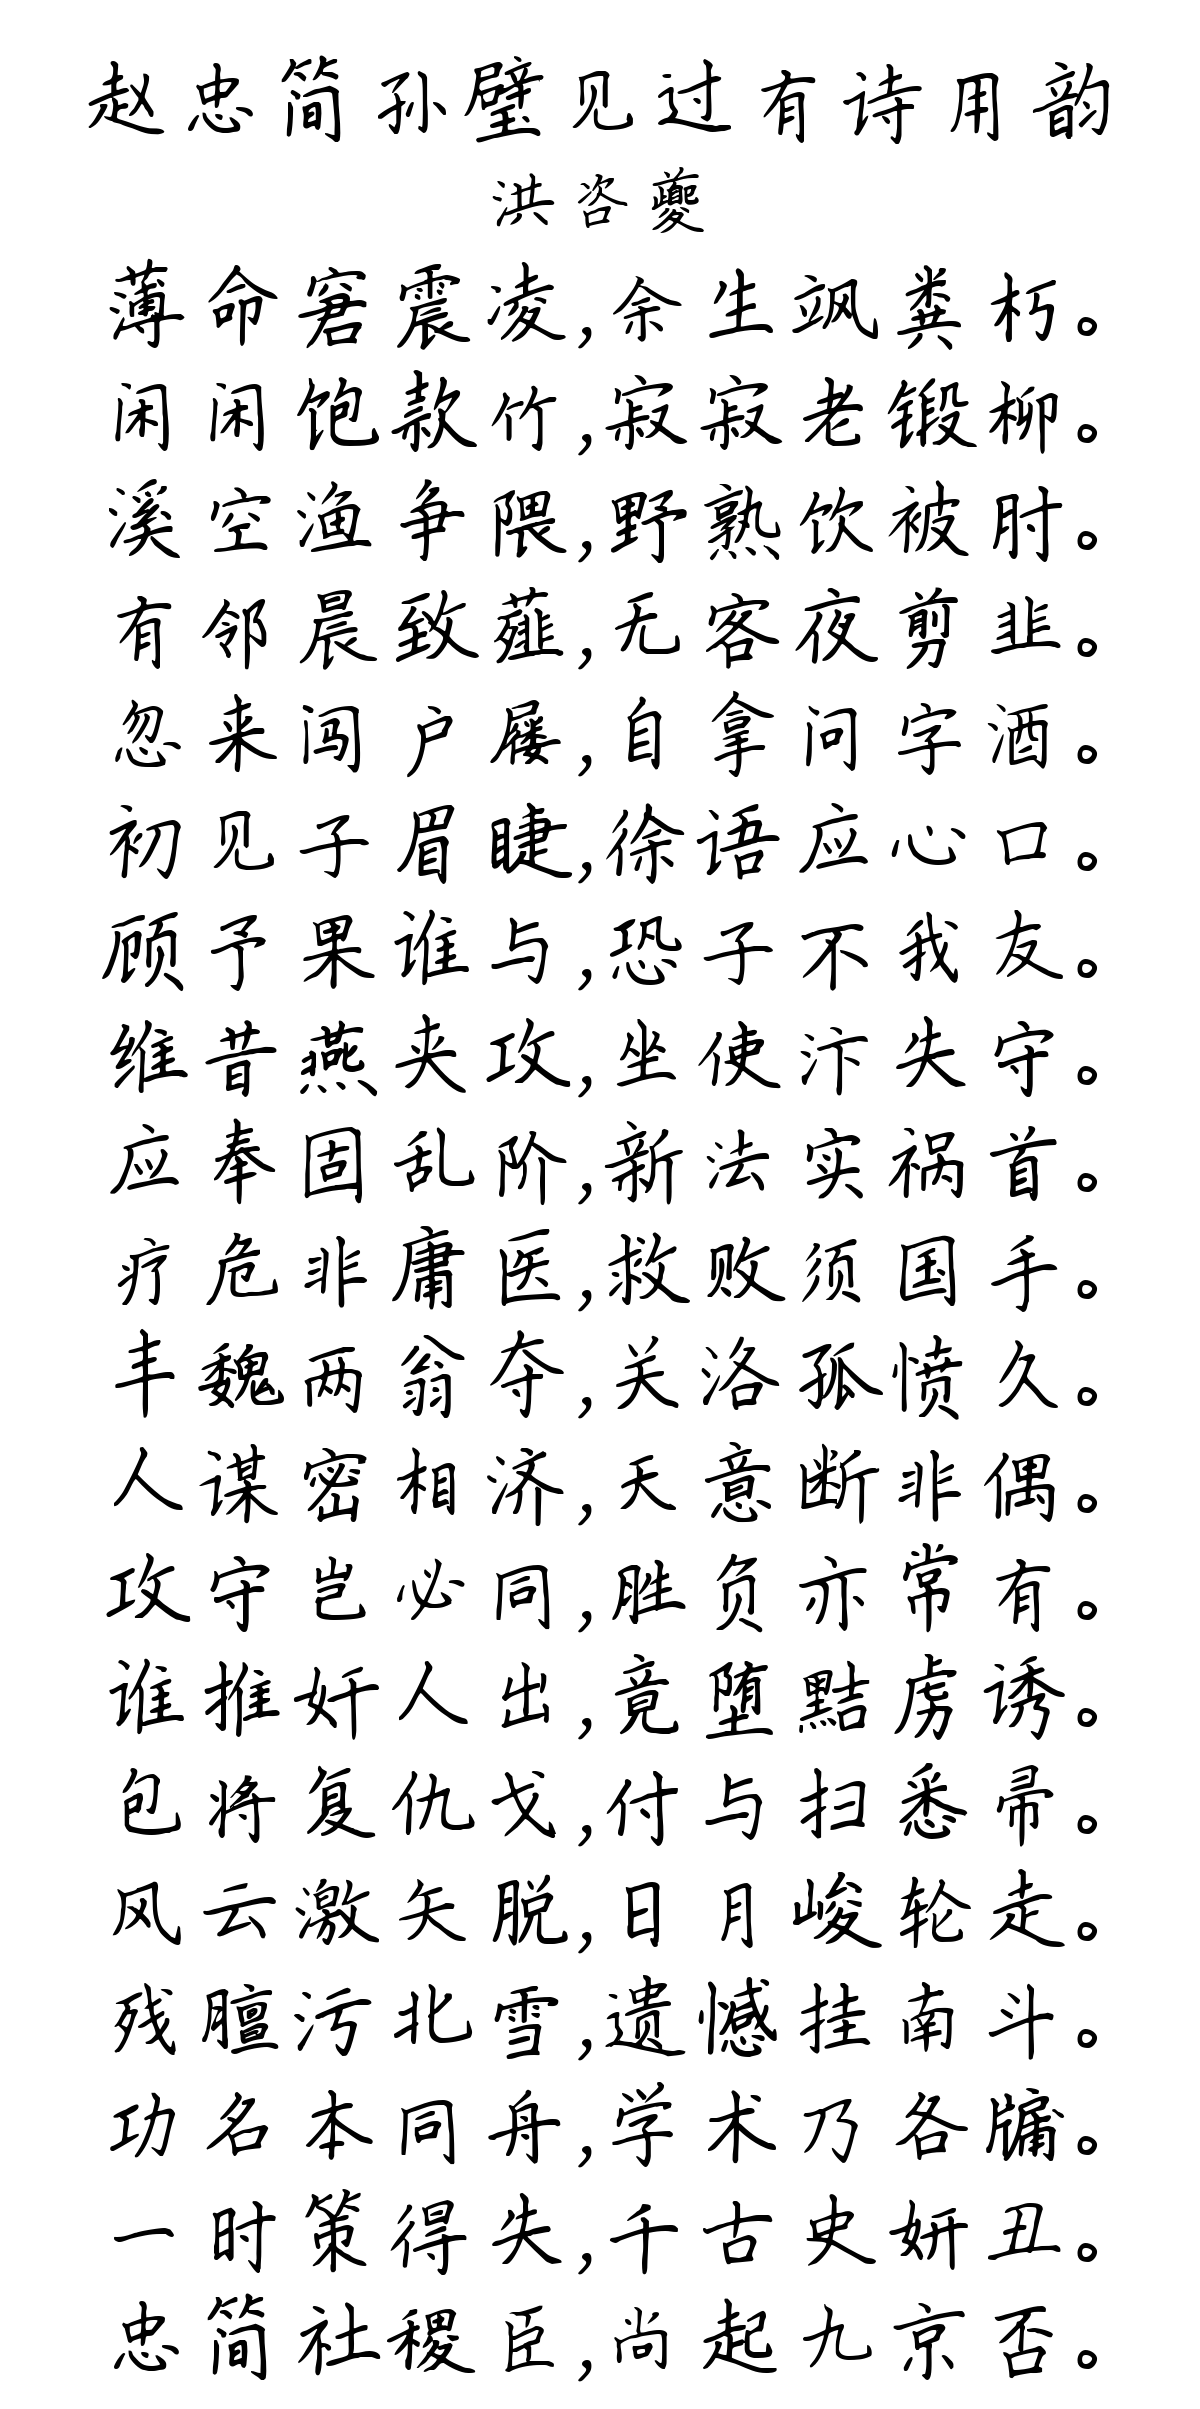 赵忠简孙璧见过有诗用韵
洪咨夔
薄命窘震凌,余生飒粪朽。
闲闲饱款竹,寂寂老锻柳。
溪空渔争隈,野熟饮被肘。
有邻晨致薤,无客夜剪韭。
忽来闯户屦,自拿问字酒。
初见子眉睫,徐语应心口。
顾予果谁与,恐子不我友。
维昔燕夹攻,坐使汴失守。
应奉固乱阶,新法实祸首。
疗危非庸医,救败须国手。
丰魏两翁夺,关洛孤愤久。
人谋密相济,天意断非偶。
攻守岂必同,胜负亦常有。
谁推奸人出,竟堕黠虏诱。
包将复仇戈,付与扫悉帚。
风云激矢脱,日月峻轮走。
残膻污北雪,遗憾挂南斗。
功名本同舟,学术乃各牖。
一时策得失,千古史妍丑。
忠简社稷臣,尚起九京否。